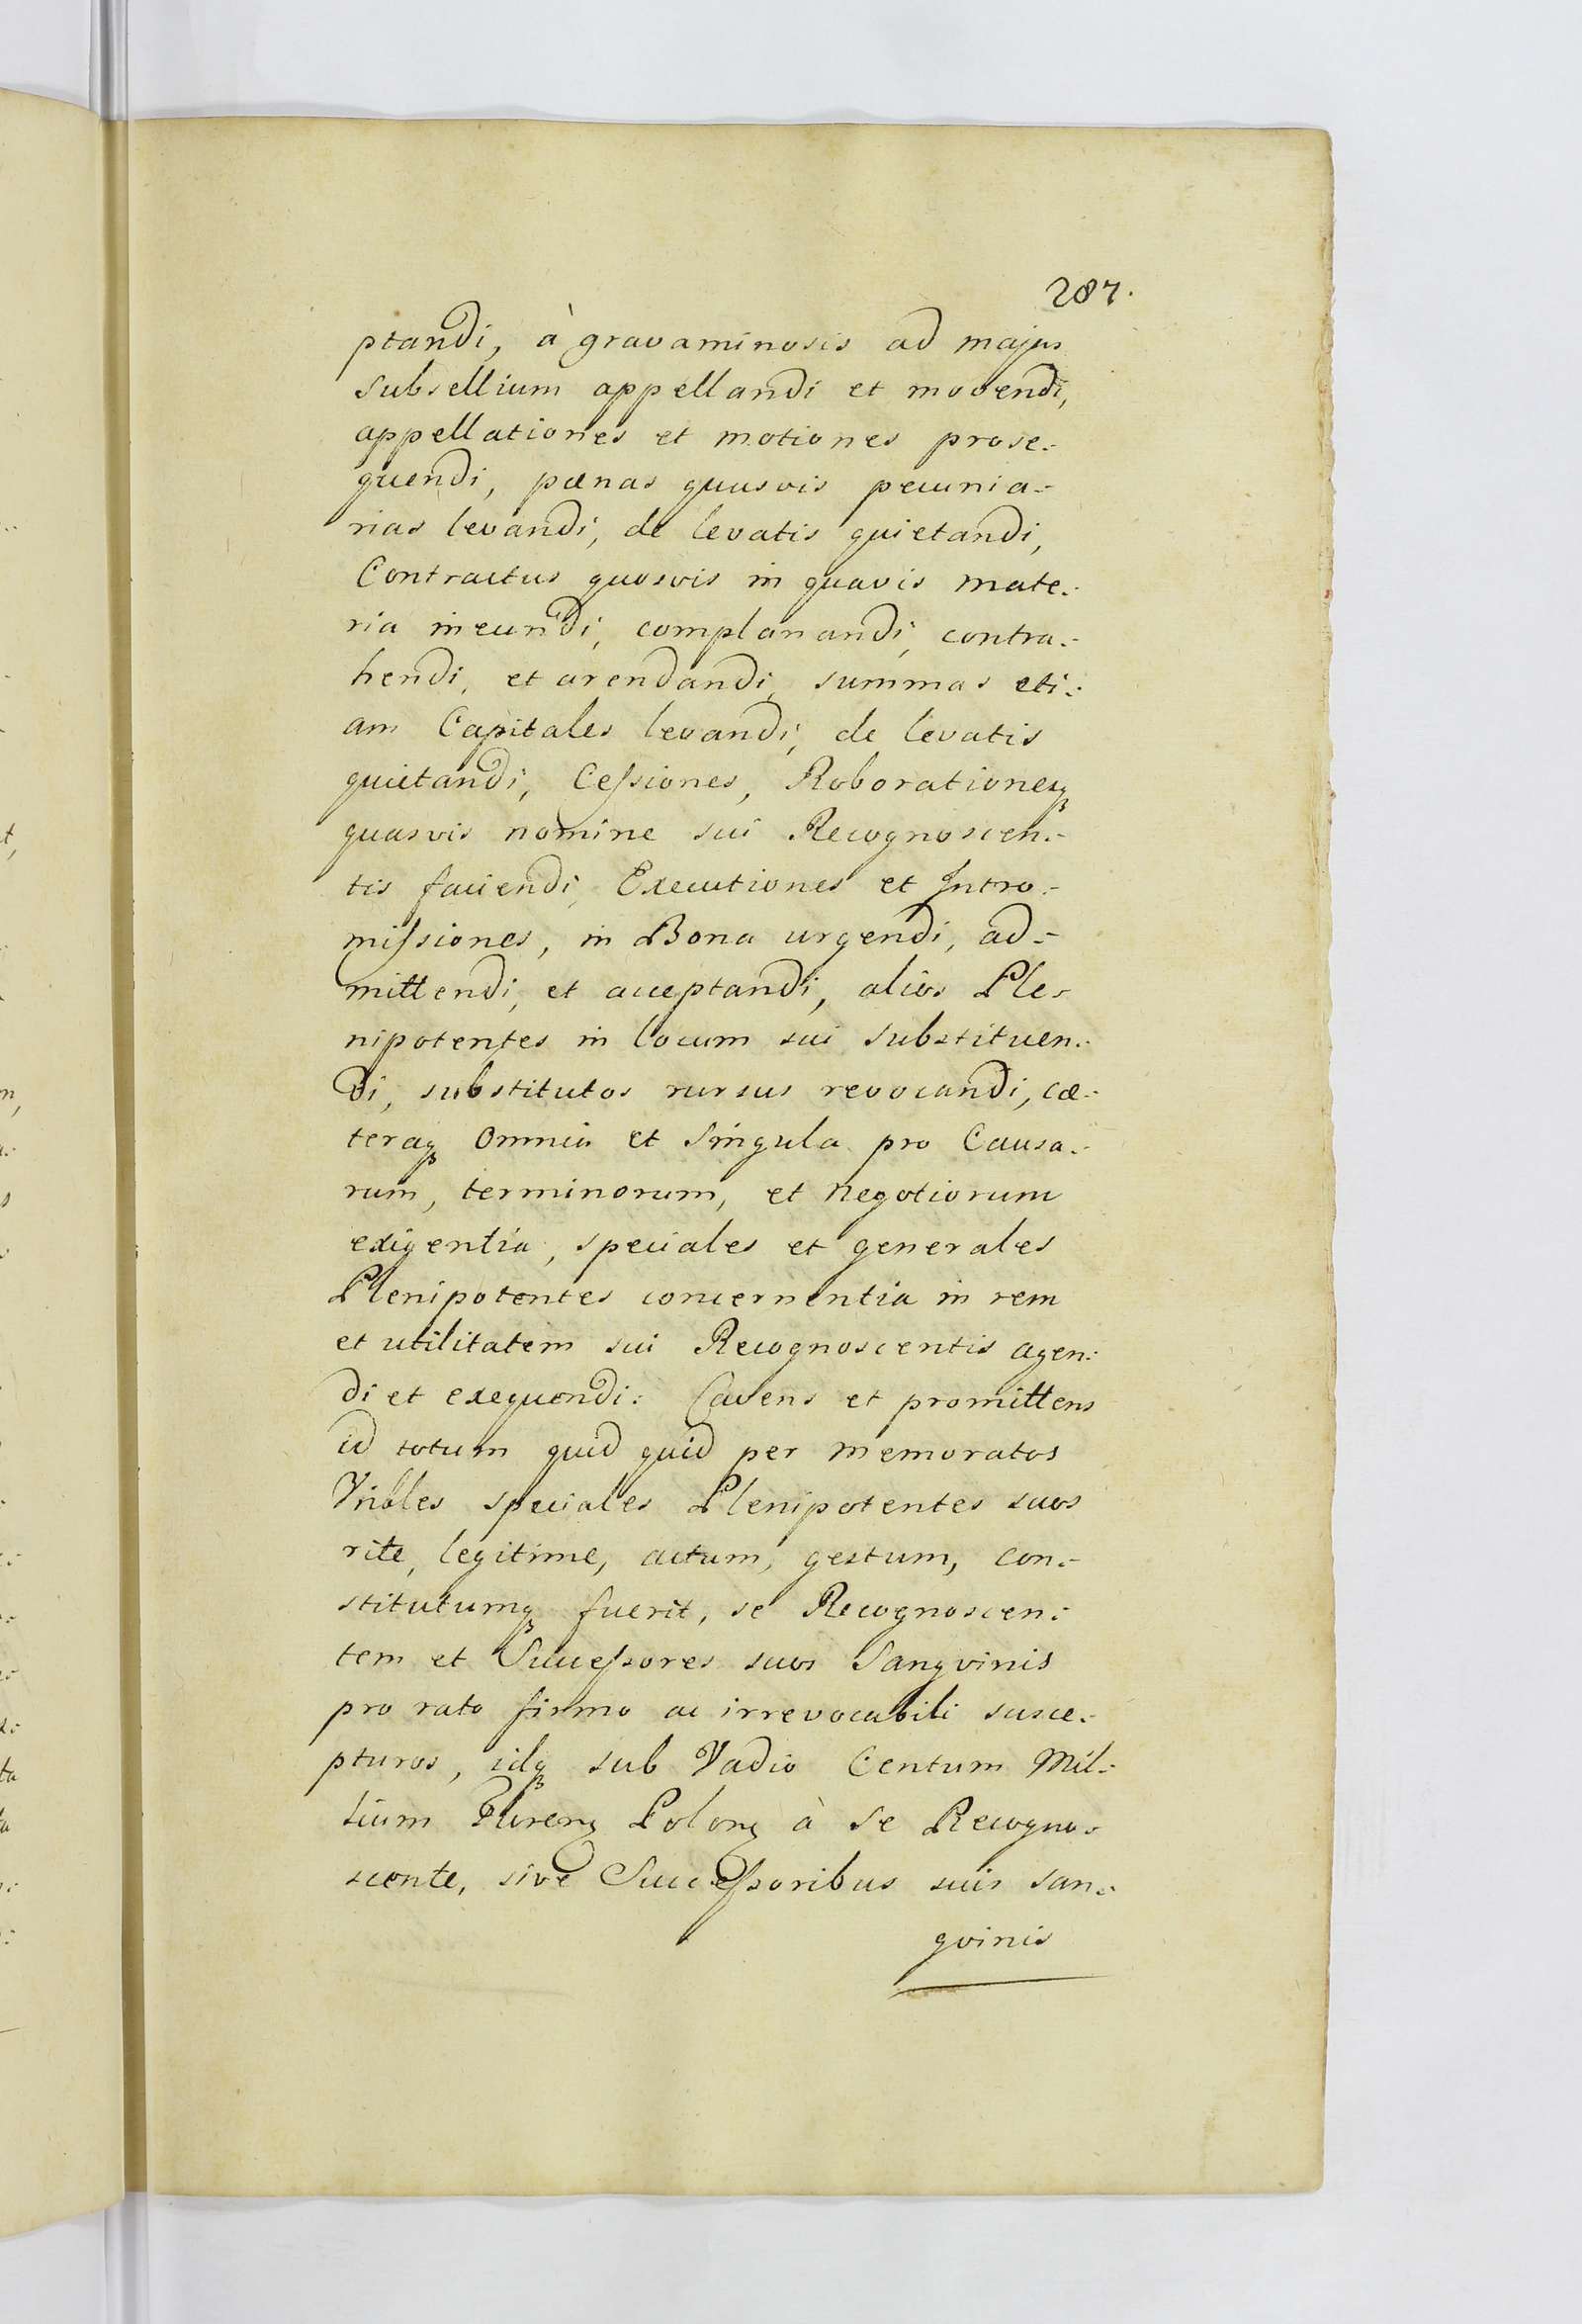 287.
ptandi, à gravaminosis ad majus
subsellium appellandi et movendi,
appellationes et motiones prose:-
quendi, pænas quasvis pecunia:-
rias levandi, de levatis quietandi,
Contractus quosvis in quavis mate:-
ria ineundi, complanandi, contra:-
hendi, et arendandi, summas eti:-
am Capitales levandi, de levatis
quietandi, Ceſsiones, Roborationesqꝫ
quasvis nomine sui Recognoscen:-
tis faciendi, Executiones et Intro:-
miſsiones, in Bona urgendi, ad:-
mittendi, et acceptandi, alios Ple-
nipotentes in locum sui substituen:-
di, substitutos rursus revocandi, cæ:-
teraqꝫ Omnia et Singula pro Causa:-
rum, terminorum, et negotiorum
exigentia, speciales et generales
Plenipotentes concernentia in rem
et utilitatem sui Recognoscentis agen:
di et exequendi: Cavens et promittens
id totum quid quid per memoratos
speciales Plenipotentes suos
rite, legitime, actum, gestum, con:-
stitutumqꝫ fuerit, se Recognoscen:
tem et Succeſsores suos Sangvinis
pro rato firmo ac irrevocabili susce:-
pturos, idqꝫ sub Vadio Centum Mil:-
lium Floren Polon à se Recogno-
scente, sive Succeſsoribus suis san:-
gvinis